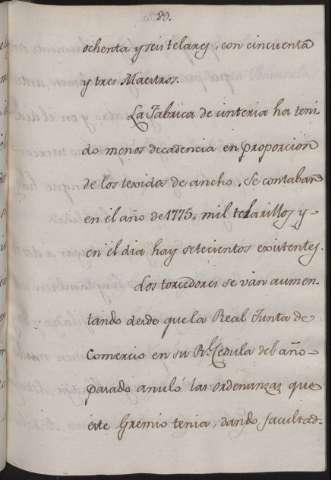 29.
ochenta y seis telares, con cincuenta
y tres Maestros.
La Fabrica de cinteria ha teni
do menos decadencia en proporcion
de los texidos de ancho. Se contaban
en el año de 1775. mil telarillos y
en el dia hay setecientos existentes.
Los torcedores se van aumen-
tando desde que la Real Junta de
Comercio en su Rl. Cedula del año
pasado anuló las ordenanzas que
este Gremio tenia, dando facultad-